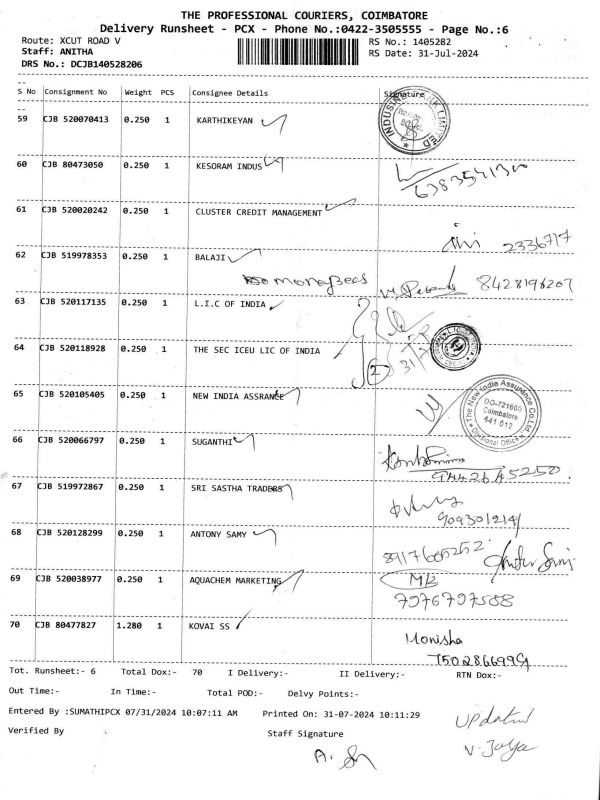 THE PROFESSIONAL COURIERS, COIMBATORE
Delivery Runsheet - PCX - Phone No.:0422-3505555 - Page No.:6
Route: XCUT ROAD V RS No.: 1405282
Staff: ANITHA RS Date: 31-Jul-2024
DRS No.: DCJB140528206
S No Consignment No Weight PCS Consignee Details Signature
59 CJB 520070413 0.250 1 KARTHIKEYAN
60 CJB 80473050 0.250 1 KESORAM INDUS
6383541300
61 CJB 520020242 0.250 1 CLUSTER CREDIT MANAGEMENT
2336717
62 CJB 519978353 0.250 1 BALAJI
8428196207
63 CJB 520117135 0.250 1 L.I.C OF INDIA
64 CJB 520118928 0.250 1 THE SEC ICEU LIC OF INDIA
65 CJB 520105405 0.250 1 NEW INDIA ASSRANCE
The New India Assurance Co.Ltd.
DO-721600
Coimbatore
641 012
Divisional Office
66 CJB 520066797 0.250 1 SUGANTHI
67 CJB 519972867 0.250 1 SRI SASTHA TRADERS
68 CJB 520128299 0.250 1 ANTONY SAMY
69 CJB 520038977 0.250 1 AQUACHEM MARKETING
7976797588
70 CJB 80477827 1.280 1 KOVAI SS
Monisha
Tot. Runsheet:- 6 Total Dox:- 70 I Delivery:- II Delivery:- RTN Dox:-
Out Time:- In Time:- Total POD:- Delvy Points:-
Entered By :SUMATHIPCX 07/31/2024 10:07:11 AM Printed On: 31-07-2024 10:11:29
Verified By Staff Signature
Updated
V. Jaya